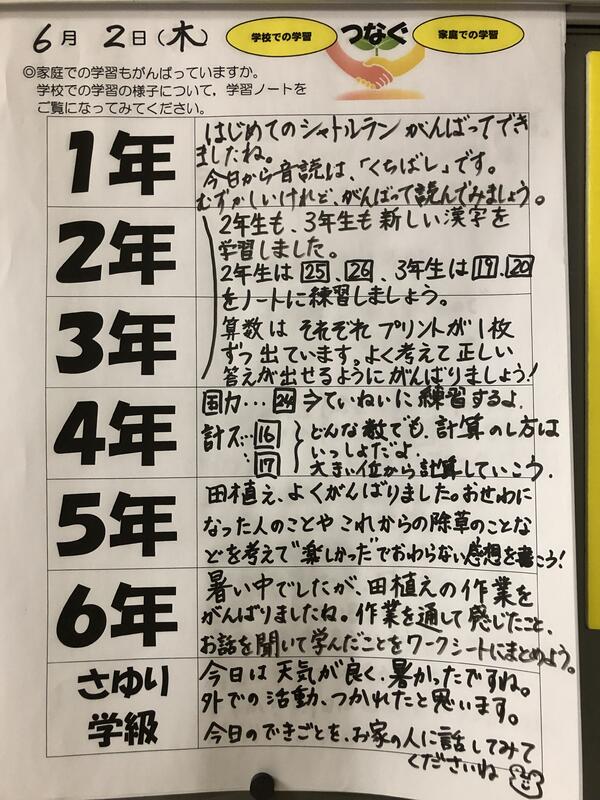 6月 2日(木)
学校での学習 つなぐ 家庭での学習
◎家庭での学習もがんばっていますか。
学校での学習の様子について，学習ノートを
ご覧になってみてください。
1年
はじめてのシャトルラン がんばってでき
ましたね。
今日から音読は、「くちばし」です。
むずかしいけれど、がんばって読んでみましょう。
2年
3年
2年生も、3年生も新しい漢字を
学習しました。
2年生は 25 、 26 、3年生は 19 、 20
をノートに練習しましょう。
算数は それぞれ プリントが1枚
ずつ 出ています。よく考えて 正しい
答えが出せるように がんばりましょう！
4年
国力… 24 今ていねいに練習するよ。
計ス… 16
… 17
どんな数でも、計算のし方は
いっしょだよ。
大きい位から計算していこう。
5年
田植え、よくがんばりました。おせわに
なった人のことや これからの除草のことな
どを考えて"楽しかった"でおわらない感想を書こう！
6年
暑い中でしたが、田植えの作業を
がんばりましたね。作業を通して感じたこと、
お話を聞いて学んだことをワークシートにまとめよう。
さゆり
学級
今日は天気が良く、暑かったですね。
外での活動、つかれたと思います。
今日のできごとを、お家の人に話してみて
くださいね